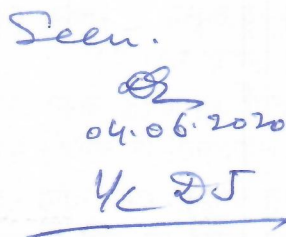 Seen.
04.06.2020
I/c DJ